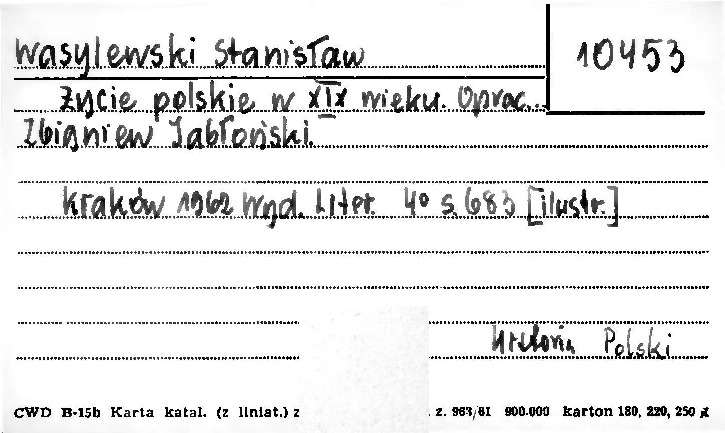 Wasylewski Stanisław
10453
Życie polskie w XIX wieku. Oprac.
Zbigniew Jabłoński.
Kraków 1962 Wyd. Liter. 4° s. 683 [ilustr.]
Historia Polski
CWD B-15b Karta katal. (z liniat.) z . z. 963/61 900.000 karton 180, 220, 250 g